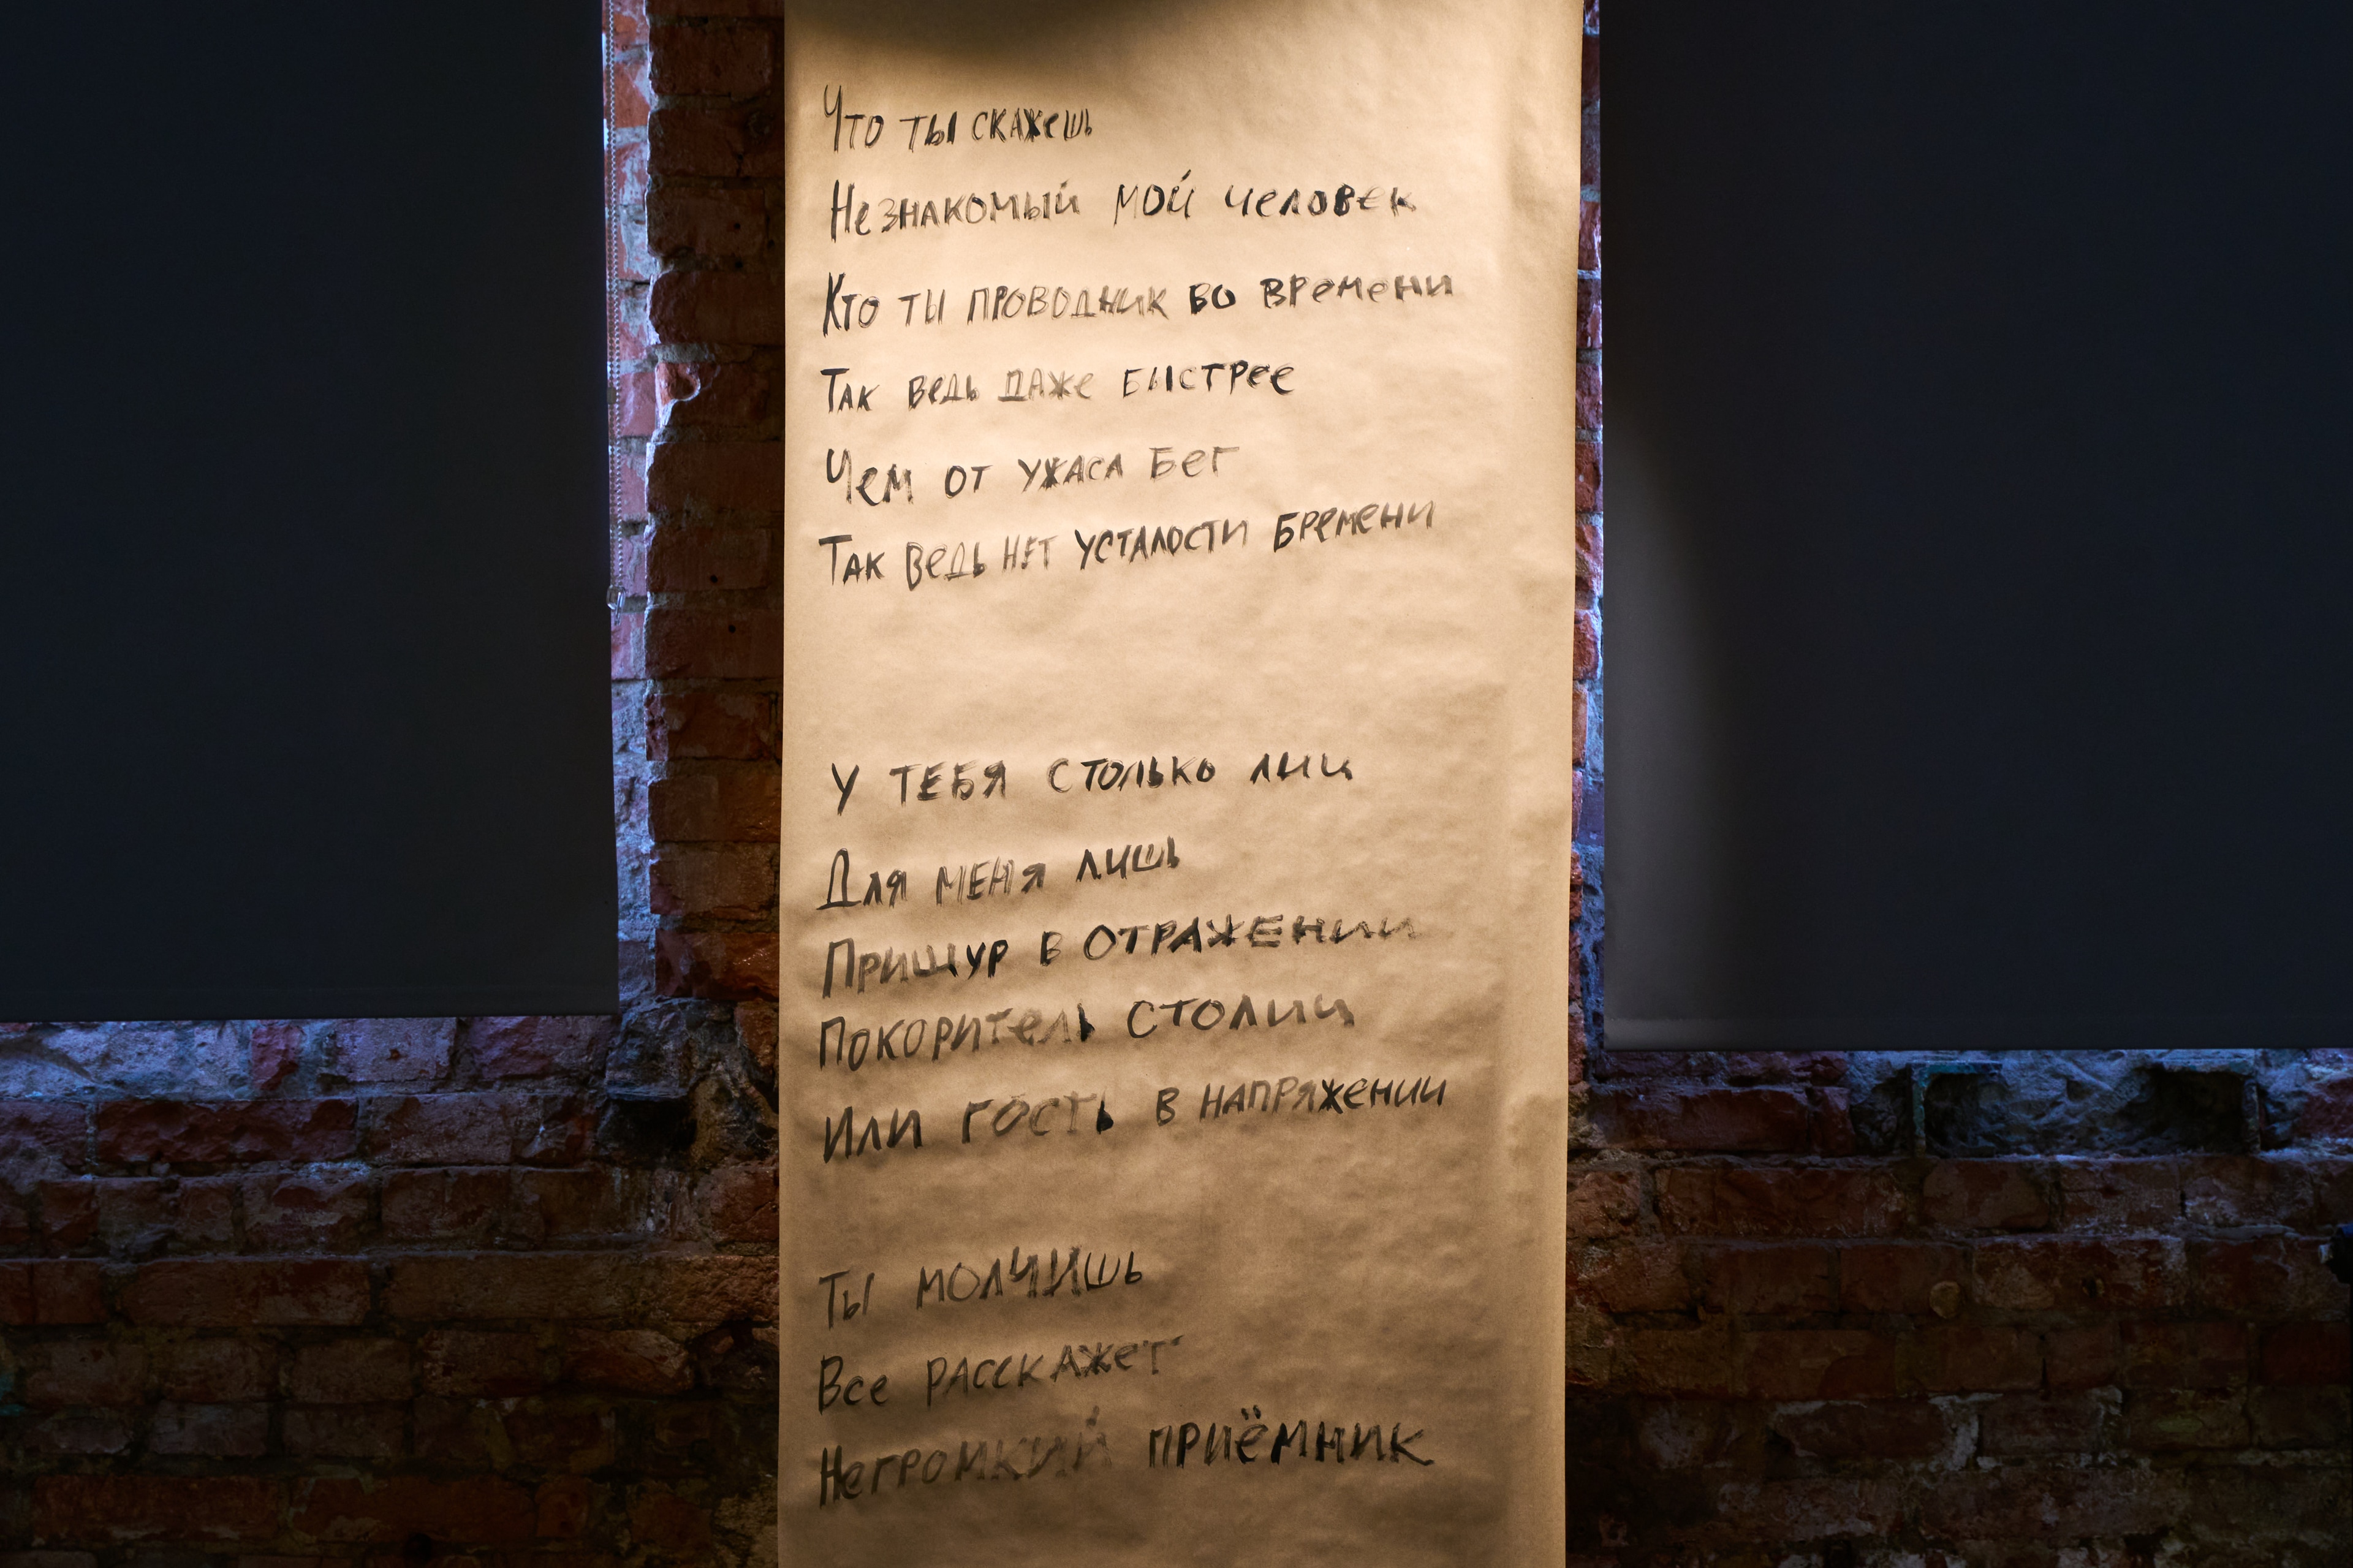 Что ты скажешь
Незнакомый мой человек
Кто ты проводник во времени
Так ведь даже быстрее
Чем от ужаса бег
Так ведь нет усталости бремени
У тебя столько лиц
Для меня лишь
Прищур в отражении
Покоритель столиц
Или гость в напряжении
Ты молчишь
Все расскажет
Негромкий приёмник